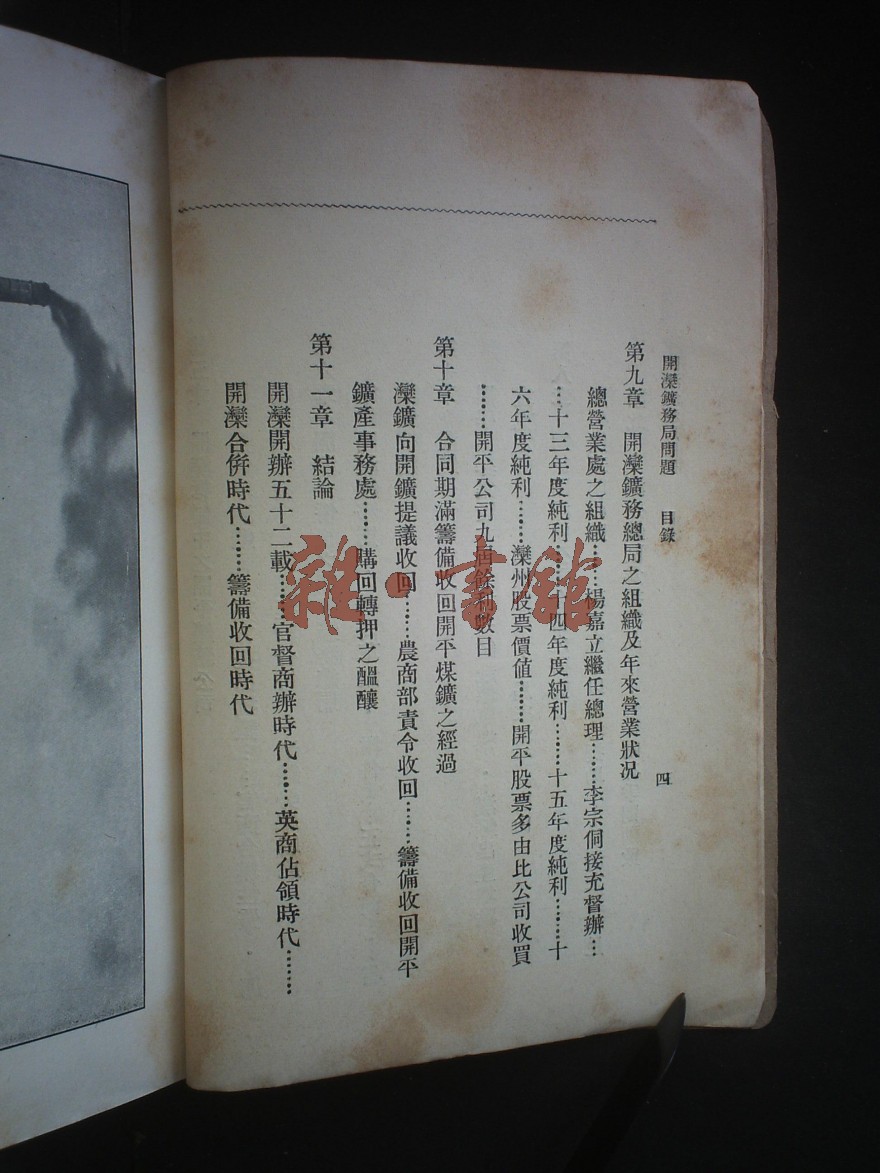 開灤鑛務局問題 目錄 四
第九章 開灤鑛務總局之組織及年來營業狀況
總營業處之組織………楊嘉立繼任總理………李宗侗接充督辦…
…十三年度純利………十四年度純利………十五年度純利………十
六年度純利………灤州股票價值………開平股票多由比公司收買
………開平公司九屆餘利數目
第十章 合同期滿籌備收回開平煤鑛之經過
灤鑛向開鑛提議收回………農商部責令收回………籌備收回開平
鑛產事務處………購回轉押之醞釀
第十一章 結論
開灤開辦五十二載………官督商辦時代………英商佔領時代………
開灤合併時代………籌備收回時代
雜·書館